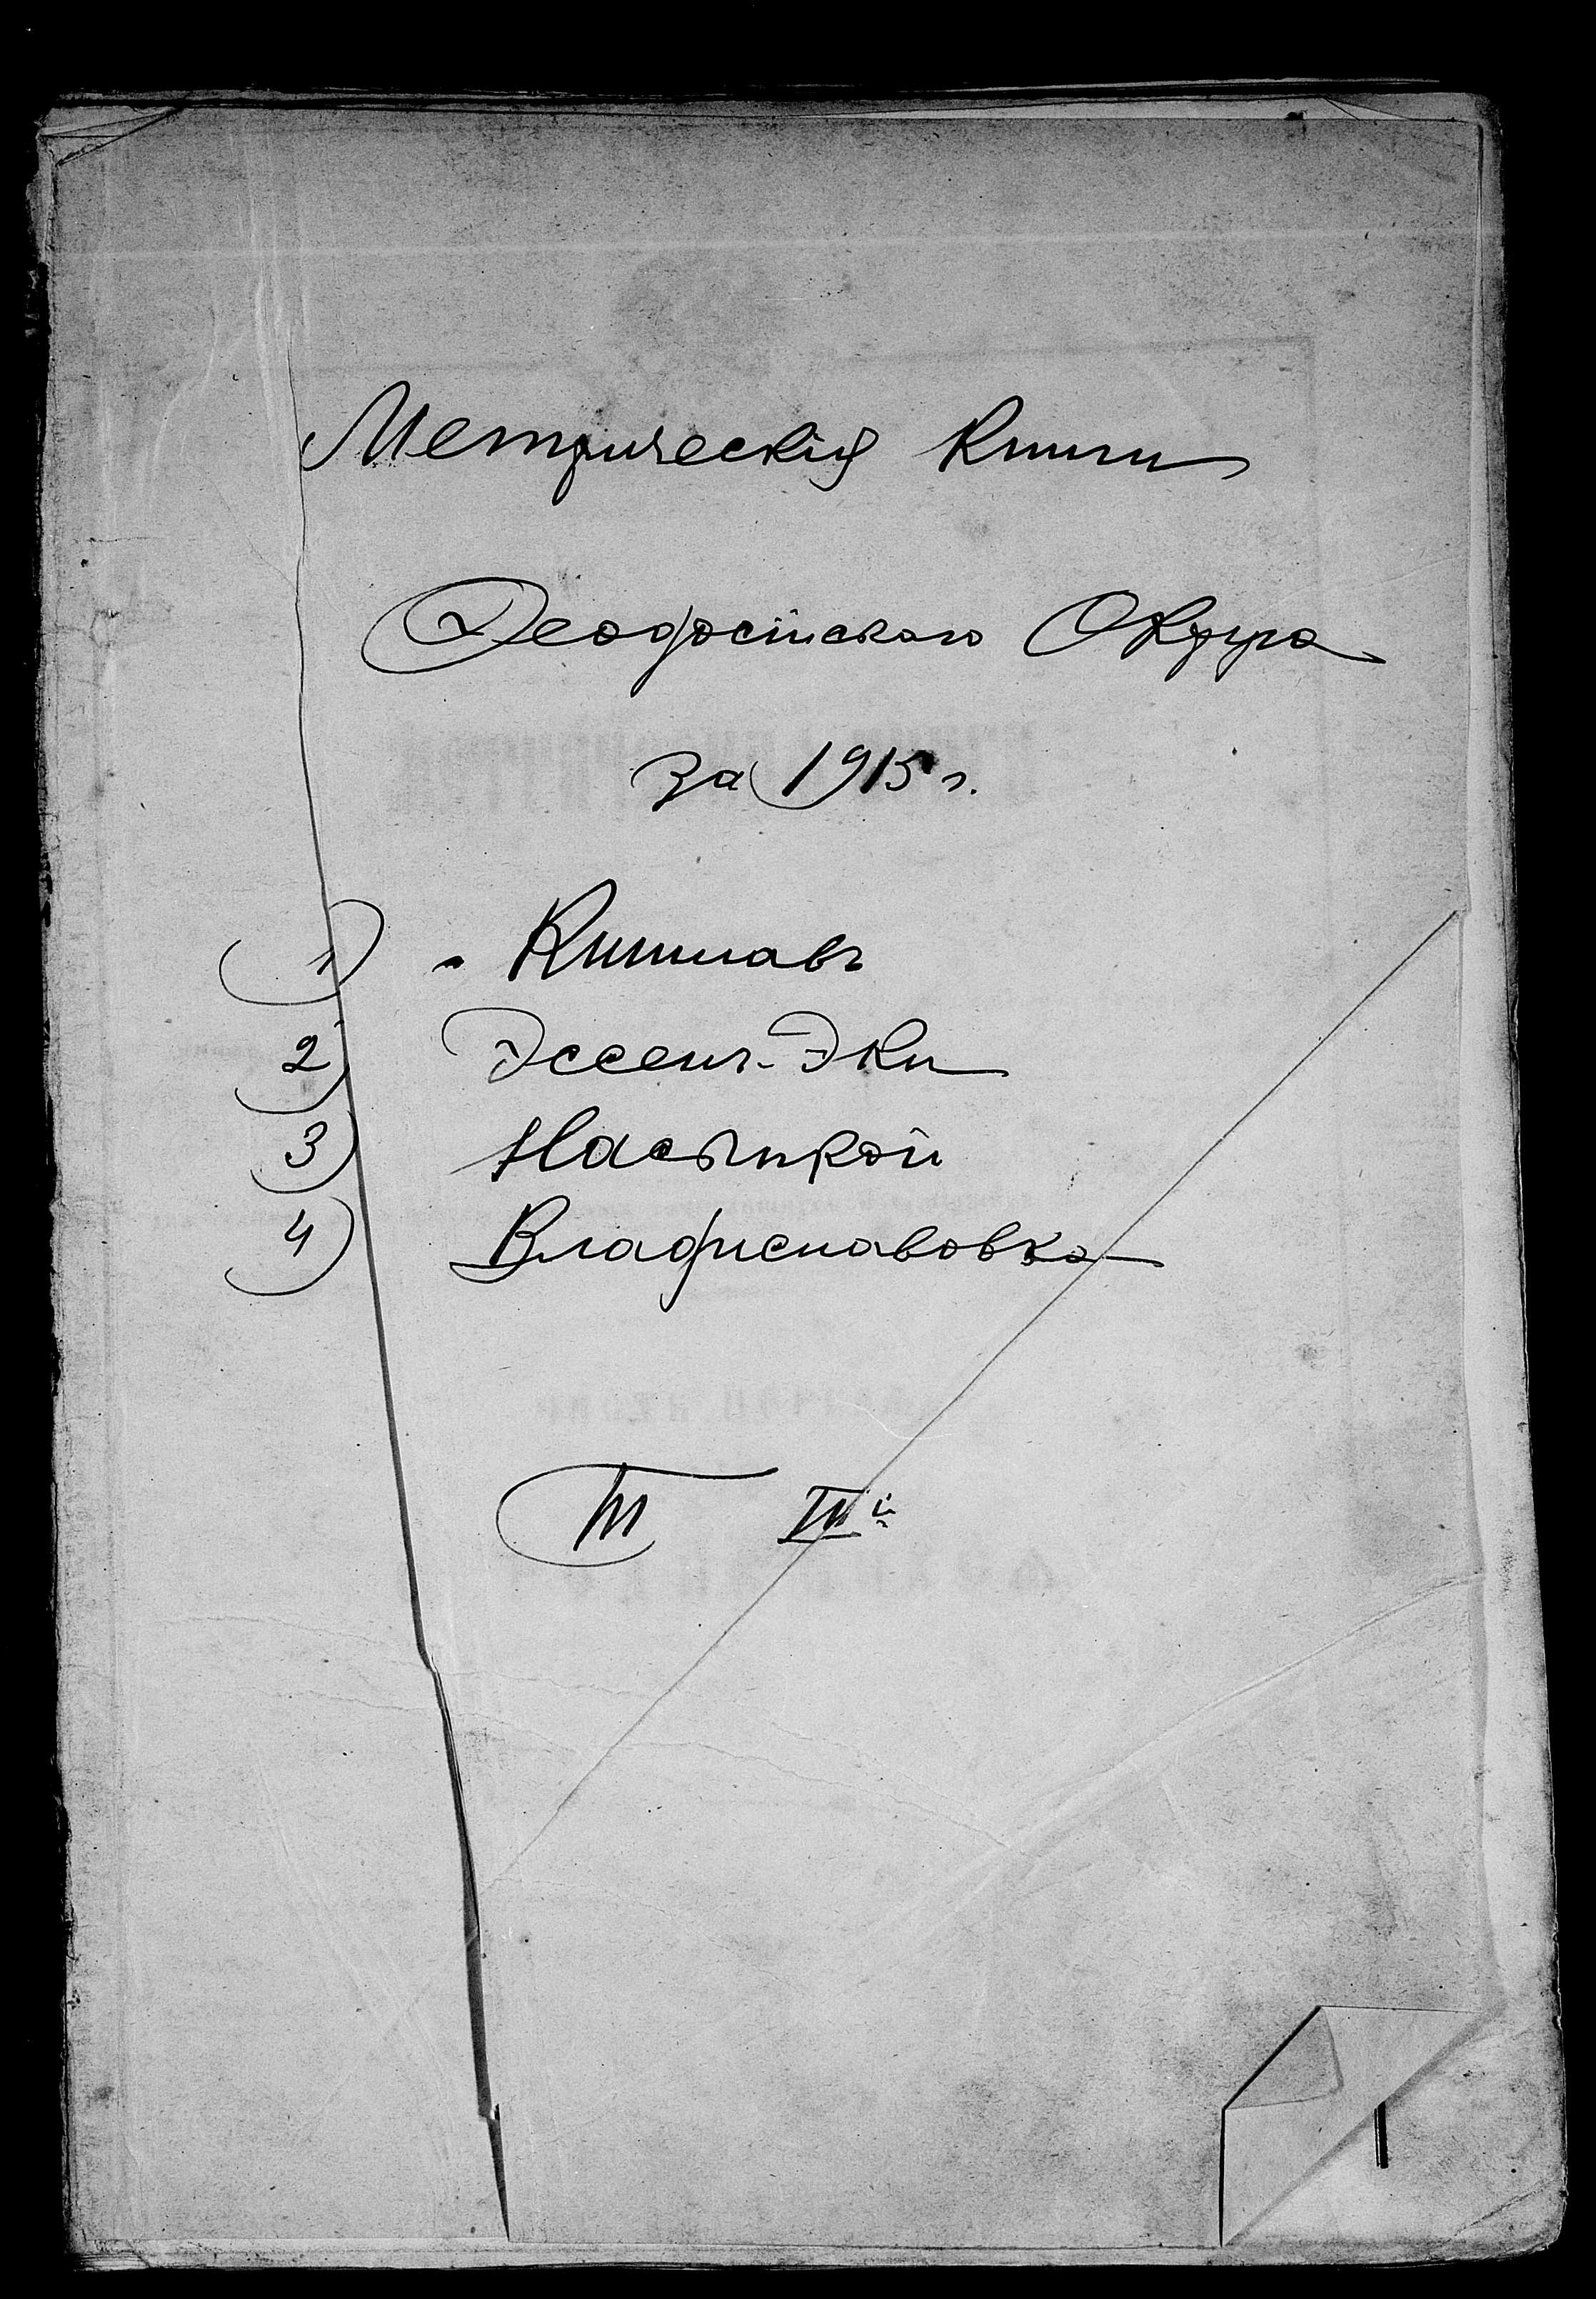 Метрическія книги
Ѳеодосійскаго Округа
за 1915 г.
1) Кишлавъ
2) Эссенъ-Эки
3) Насыпкой
4) Владиславовка
Т III й